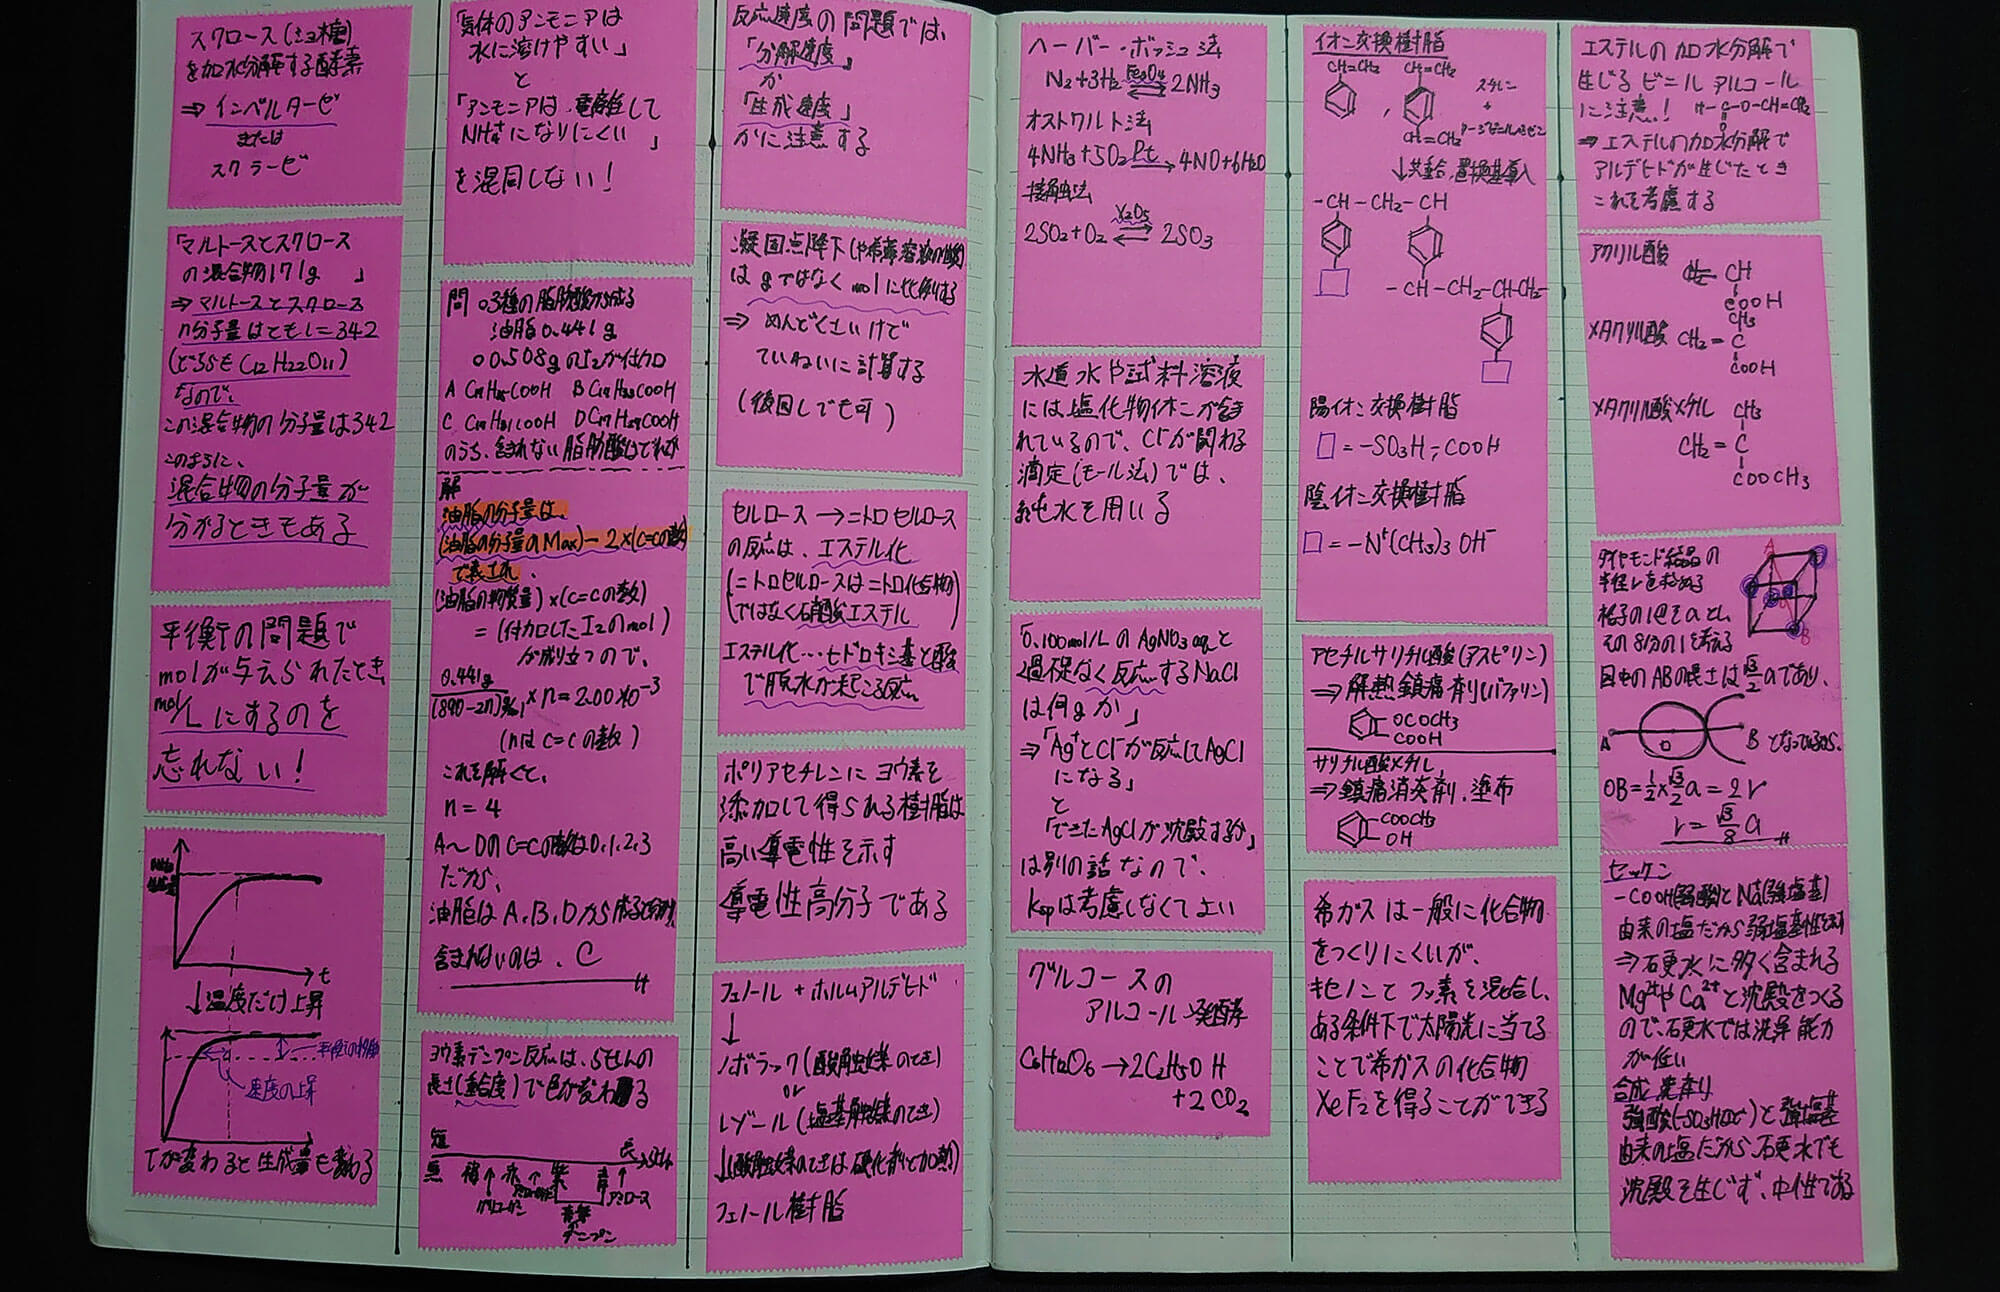 スクロース(ショ糖)
を加水分解する酵素
⇒ インベルターゼ
または
スクラーゼ
「マルトースとスクロース
の混合物171g 」
⇒ マルトースとスクロース
の分子量はともに=342
(どちらもC12H22O11)
なので、
この混合物の分子量は342
このように、
混合物の分子量が
分かるときもある
平衡の問題で
molが与えられたとき、
mol/Lにするのを
忘れない!
t
↓温度だけ上昇
平衡の移動
速度の上昇
Tが変わると生成量も変わる
「気体のアンモニアは
水に溶けやすい」
と
「アンモニアは、電離して
NH4+になりにくい 」
を混同しない!
問 ○3種の脂肪酸から成る
油脂0.441g
○0.508gのI2が付加
A C17H35COOH B C17H33COOH
C C17H31COOH D C17H29COOH
のうち、含まれない脂肪酸はどれか
解
油脂の分子量は、
(油脂の分子量のMax)-2×(C=Cの数)
で表され、
(油脂の物質量)×(C=Cの数)
=(付加したI2のmol)
が成り立つので、
0.441g
(890-2n)g/mol × n=2.00×10-3
(nはC=Cの数)
これを解くと、
n=4
A~DのC=Cの数は0,1,2,3
だから、
油脂はA、B、Dから成ると分かり、
含まれないのは、C
ヨウ素デンプン反応は、らせんの
長さ(重合度)で色が変わる
短 長 らせん
無 褐 赤 紫 青
グリコーゲン アミロース
デンプン
反応速度の問題では、
「分解速度」
か
「生成速度」
かに注意する
凝固点降下(や希薄溶液の性質)
はgではなくmolに比例する
⇒ めんどくさいけど
ていねいに計算する
(後回しでも可)
セルロース→ニトロセルロース
の反応は、エステル化
(ニトロセルロースはニトロ化合物
ではなく硝酸エステル)
エステル化…ヒドロキシ基と酸
で脱水が起こる反応
ポリアセチレンにヨウ素を
添加して得られる樹脂は
高い導電性を示す
導電性高分子である
フェノール + ホルムアルデヒド
↓
ノボラック(酸触媒のとき)
or
レゾール(塩基触媒のとき)
↓(酸触媒のときは硬化剤と加熱)
フェノール樹脂
ハーバー・ボッシュ法
N2+3H2 ⇄ 2NH3
Fe3O4
オストワルト法
4NH3+5O2 Pt→ 4NO+6H2O
接触法
V2O5
2SO2+O2 ⇄ 2SO3
水道水や試料溶液
には塩化物イオンが含ま
れているので、Cl-が関わる
滴定(モール法)では、
純水を用いる
「0.100mol/LのAgNO3 aqと
過不足なく反応するNaCl
は何gか」
⇒「Ag+とCl-が反応してAgCl
になる」
と
「できたAgClが沈殿するか」
は別の話なので、
Kspは考慮しなくてよい
グルコースの
アルコール発酵
C6H12O6→2C2H5OH
+2CO2
イオン交換樹脂
CH=CH2 CH=CH2
スチレン
+
CH=CH2 p-ジビニルベンゼン
↓共重合、置換基導入
-CH-CH2-CH
-CH-CH2-CH-CH2-
陽イオン交換樹脂
□=-SO3H,-COOH
陰イオン交換樹脂
□=-N+(CH3)3OH-
アセチルサリチル酸(アスピリン)
⇒ 解熱鎮痛剤(バファリン)
OCOCH3
COOH
サリチル酸メチル
⇒鎮痛消炎剤、塗布
COOCH3
OH
希ガスは一般に化合物
をつくりにくいが、
キセノンとフッ素を混合し、
ある条件下で太陽光に当てる
ことで希ガスの化合物
XeF2を得ることができる
エステルの加水分解で
生じるビニルアルコール
に注意! H-C-O-CH=CH2
O
⇒エステルの加水分解で
アルデヒドが生じたとき
これを考慮する
アクリル酸
CH2=CH
COOH
メタクリル酸
CH3
CH2=C
COOH
メタクリル酸メチル
CH3
CH2=C
COOCH3
ダイヤモンド結晶の
半径rを求める
格子の1辺をaとし、
その8分の1を考える
A
B
図中のABの長さは√3/2 aであり、
A O B となっているから、
OB=1/2×√3/2 a=2r
r=√3/8 a
セッケン
-COOH(弱酸)とNa(強塩基)
由来の塩だから弱塩基性を示す
⇒硬水に多く含まれる
Mg2+やCa2+と沈殿をつくる
ので、硬水では洗浄能力
が低い
合成洗剤
強酸(-SO3Hなど)と強塩基
由来の塩だから、硬水でも
沈殿を生じず、中性である